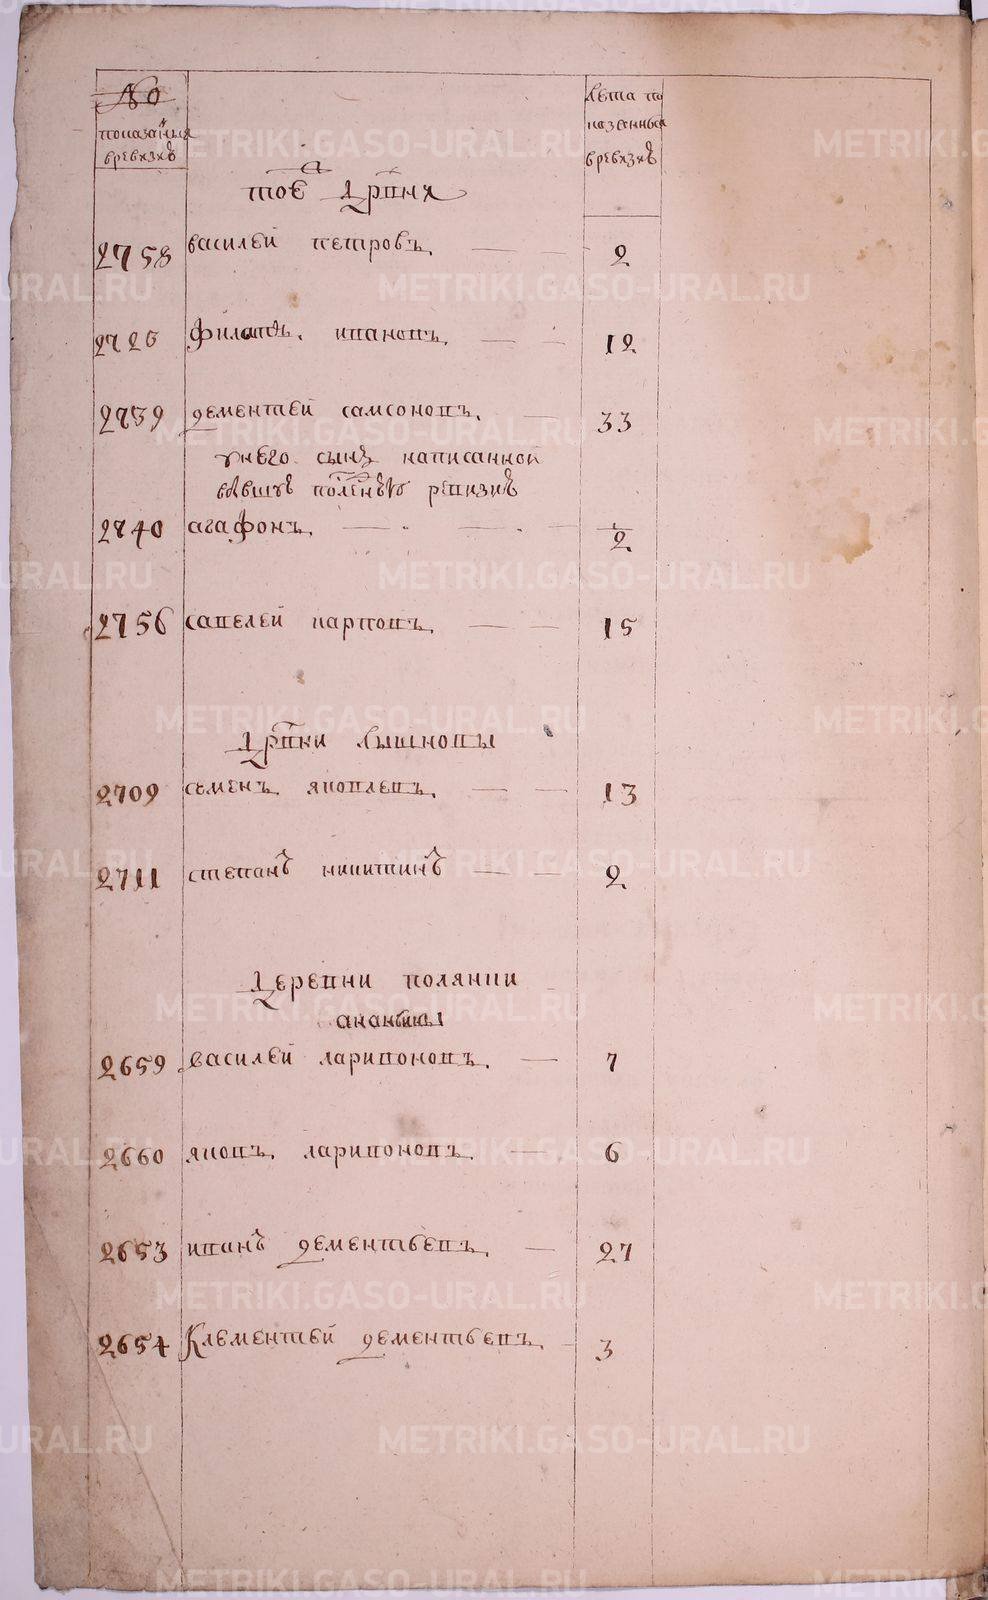 №
показанныя
вревизиѣ
Лета по
казанныя
вревизиѣ
тоѣ дрвня
2758 василей петровъ. 2
2726 филатъ. ивановъ. 12
2739 дементей самсоновъ. 33
унего сынъ написанной
вбывшуѣ полѣнѣю ревизиѣ
2740 агафонъ. 2
2756 савелей карповъ. 15
дрвни лышновы
2709 семенъ яковлевъ. 13
2711 степанъ никитинъ 2
деревни полянки
ананьины
2659 василей ларивоновъ. 7
2660 яковъ. ларивоновъ. 6
2653 иванъ дементьевъ. 27
2654 Клементей дементьевъ. 3
METRIKI.GASO-URAL.RU